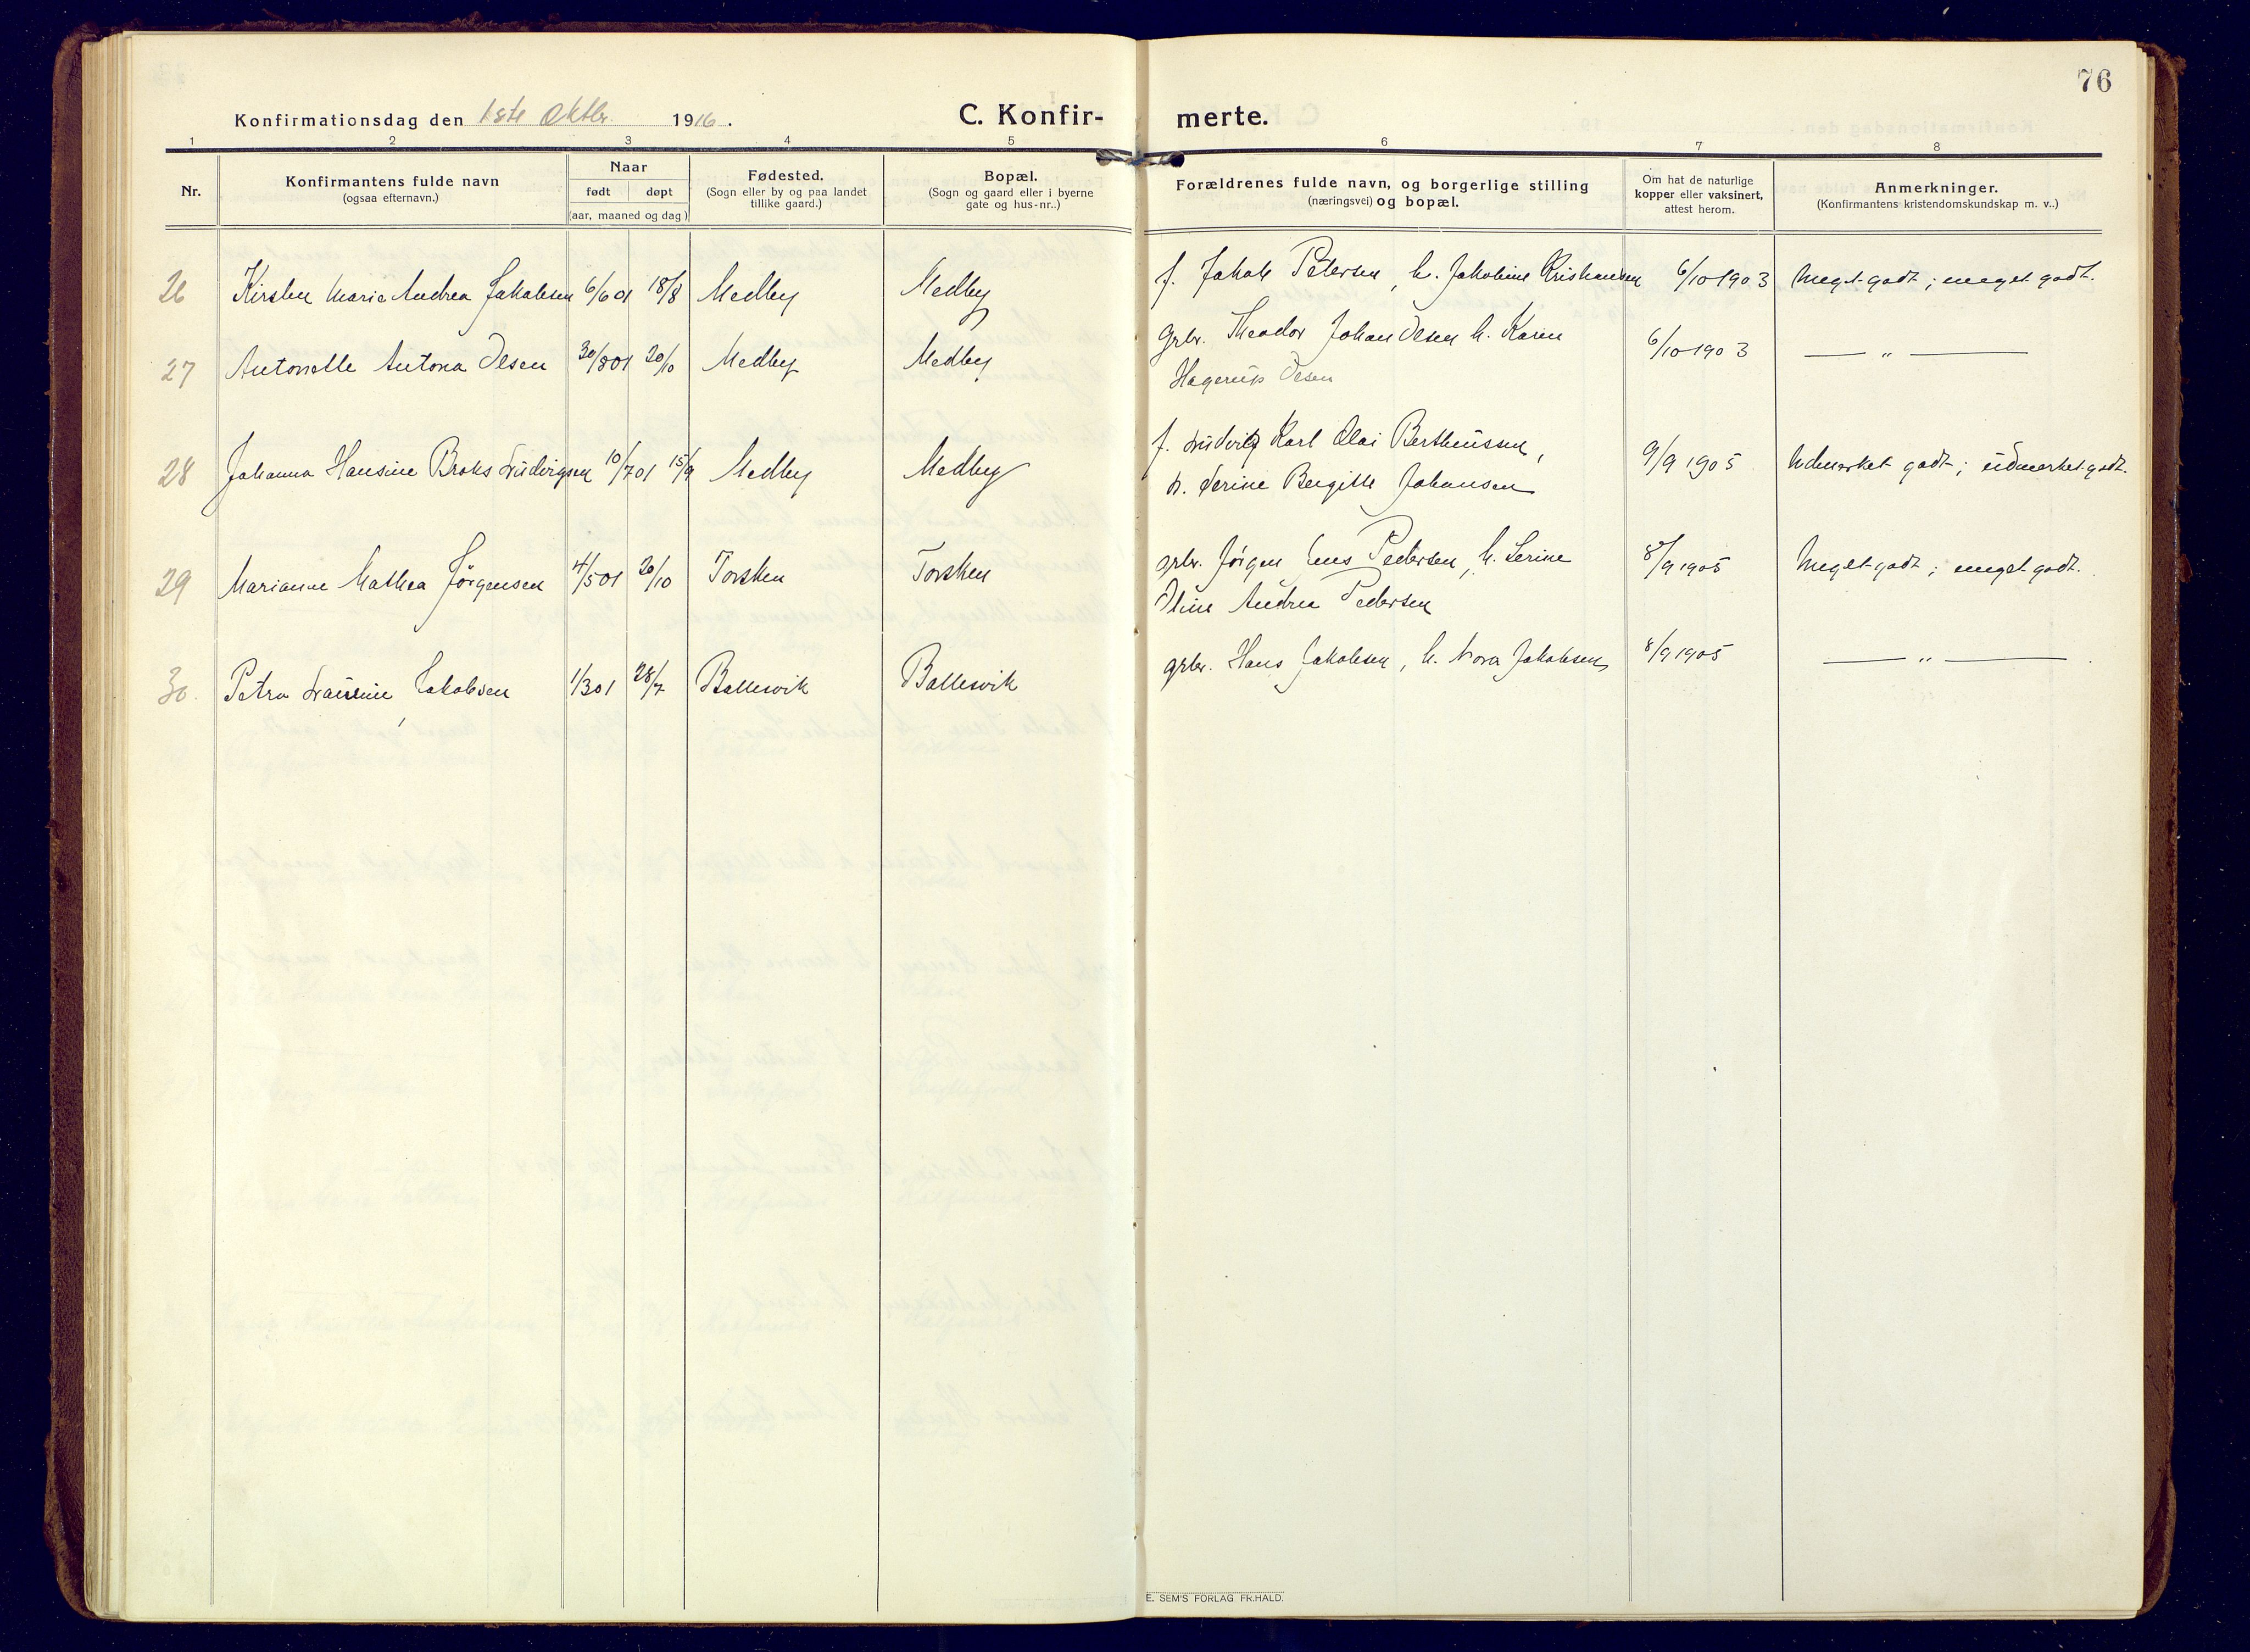 76
Konfirmationsdag den 1ste Oktbr. 1916.
C. Konfir-
merte.
1 2 3 4 5 6 7 8
Nr.
Konfirmantens fulde navn
(ogsaa efternavn.)
Naar
født døpt
(aar, maaned og dag)
Fødested.
(Sogn eller by og paa landet
tillike gaard.)
Bopæl.
(Sogn og gaard eller i byerne
gate og hus-nr..)
Forældrenes fulde navn, og borgerlige stilling
(næringsvei) og bopæl.
Om hat de naturlige
kopper eller vaksinert,
attest herom.
Anmerkninger.
(Konfirmantens kristendomskundskap m. v..)
26 Kirsten Marie Andrea Jakobsen 6/6 01 18/8 Medby Medby f. Jakob Petersen, h. Jakobine Kristiansen 6/10 1903 Meget godt; meget godt.
27 Antonette Antona Olsen 30/8 01 20/10 Medby Medby Grbr. Theodor Johan Olsen h. Karen 6/10 1903 — „ —
Hagerup Olsen
28 Johanna Hansine Broks Ludvigsen 10/7 01 15/9 Medby Medby f. Ludvig Karl Olai Bertheussen, 9/9 1905 Udmerket godt; udmerket godt.
h. Serine Bergitte Johansen
29 Marianne Mathea Jörgensen 4/5 01 20/10 Torsken Torsken grbr. Jörgen Jens Pedersen, h. Serine 8/9 1905 Meget godt; meget godt.
Oline Andrea Pedersen
30. Petra Laurine Jakobsen 1/3 01 28/7 Ballesvik Ballesvik grbr. Hans Jakobsen, h. Nora Jakobsen 8/9 1905 — „ — .
E. SEM'S FORLAG FR.HALD.